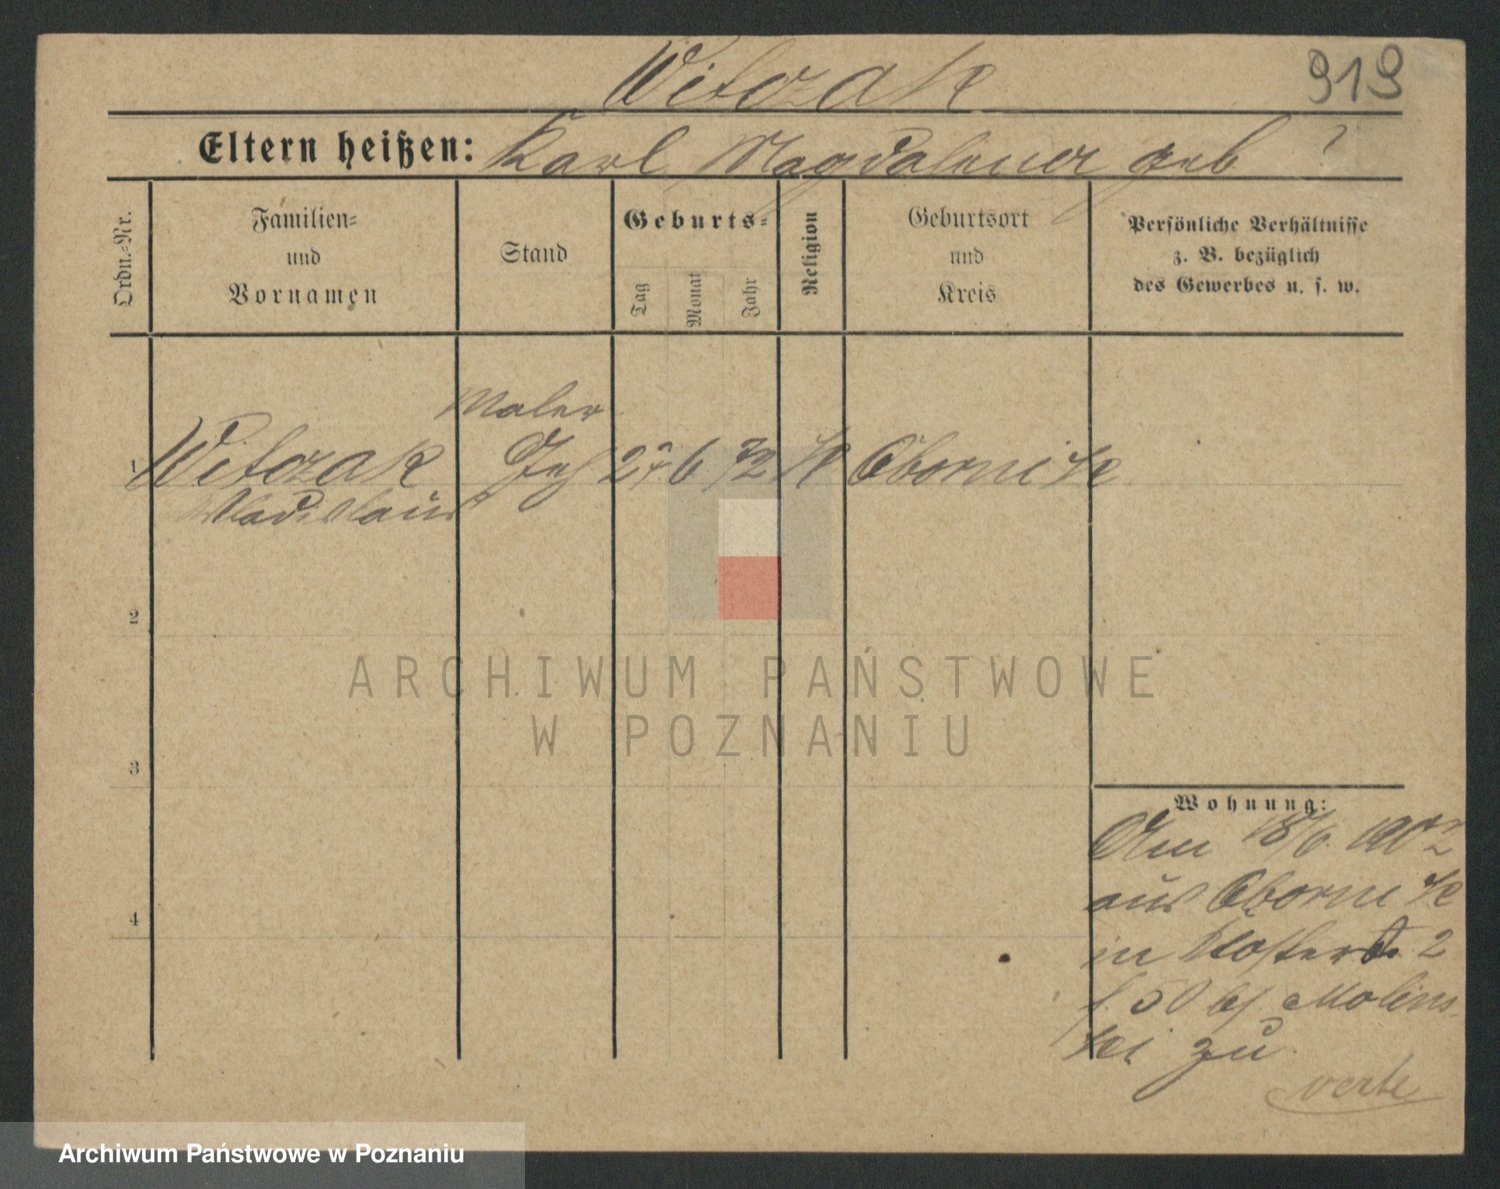 Witczak 919
Eltern heißen: Karl Magdalena geb ?
Ordn.-Nr.
Familien-
und
Vornamen
Stand
Geburts-
Tag
Monat
Jahr
Religion
Geburtsort
und
Kreis
Persönliche Verhältnisse
z. B. bezüglich
des Gewerbes u. s. w.
Maler
1 Witczak 27 6 72 K Obornik
Wladislaus
2
ARCHIWUM PAŃSTWOWE
W POZNANIU
3
Wohnung:
Am 18/6. 1902
aus Obornik
4
in 2
50 bei Molins-
ki zu
verte
Archiwum Państwowe w Poznaniu